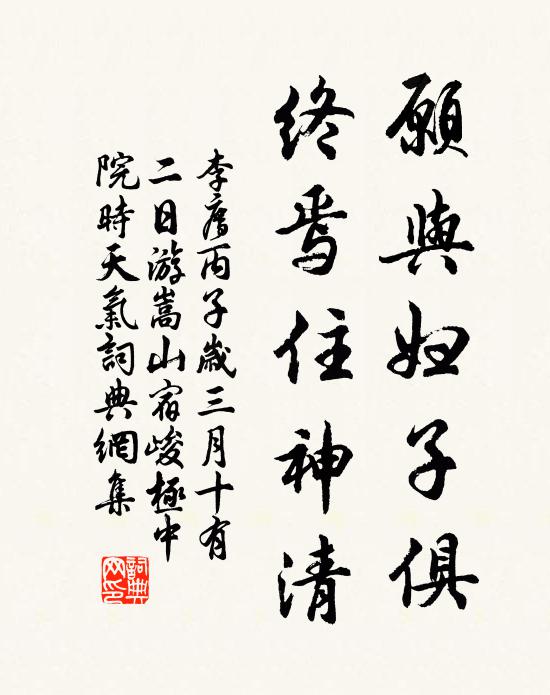 願與妇子俱
終焉住神清
李廌丙子歲三月十有
二日游嵩山宿峻極中
院時天氣詞典網集
詞典
网印